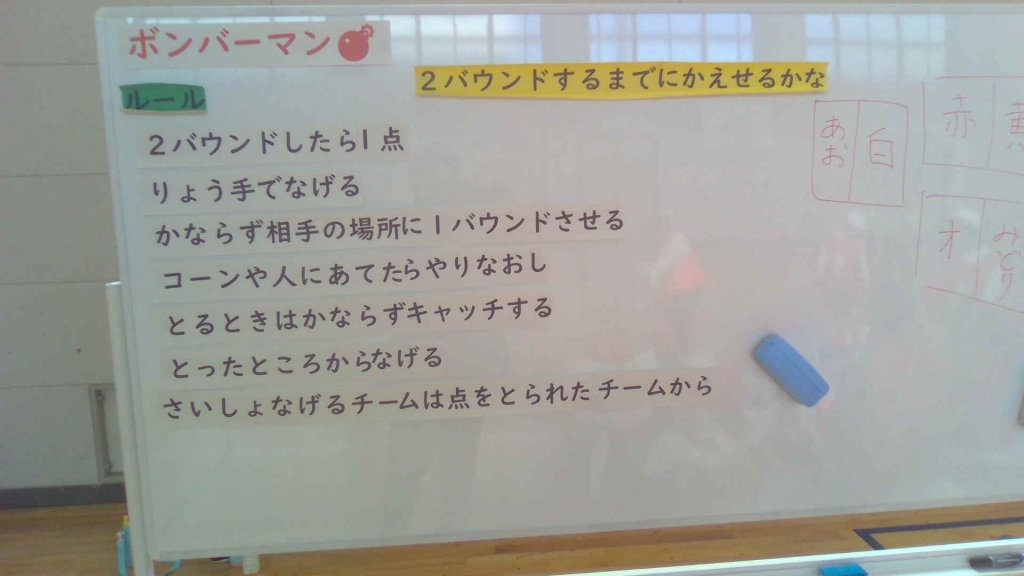 ボンバーマン
2バウンドするまでにかえせるかな
ルール
2バウンドしたら1点
りょう手でなげる
かならず相手の場所に1バウンドさせる
コーンや人にあてたらやりなおし
とるときはかならずキャッチする
とったところからなげる
さいしょなげるチームは点をとられたチームから
あお 白
赤 黄
オ みどり